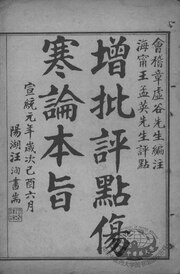 會稽章虛谷先生編注
海甯王孟英先生評點
增批評點傷
寒論本旨
宣統元年歲次己酉六月
陽湖汪洵書耑